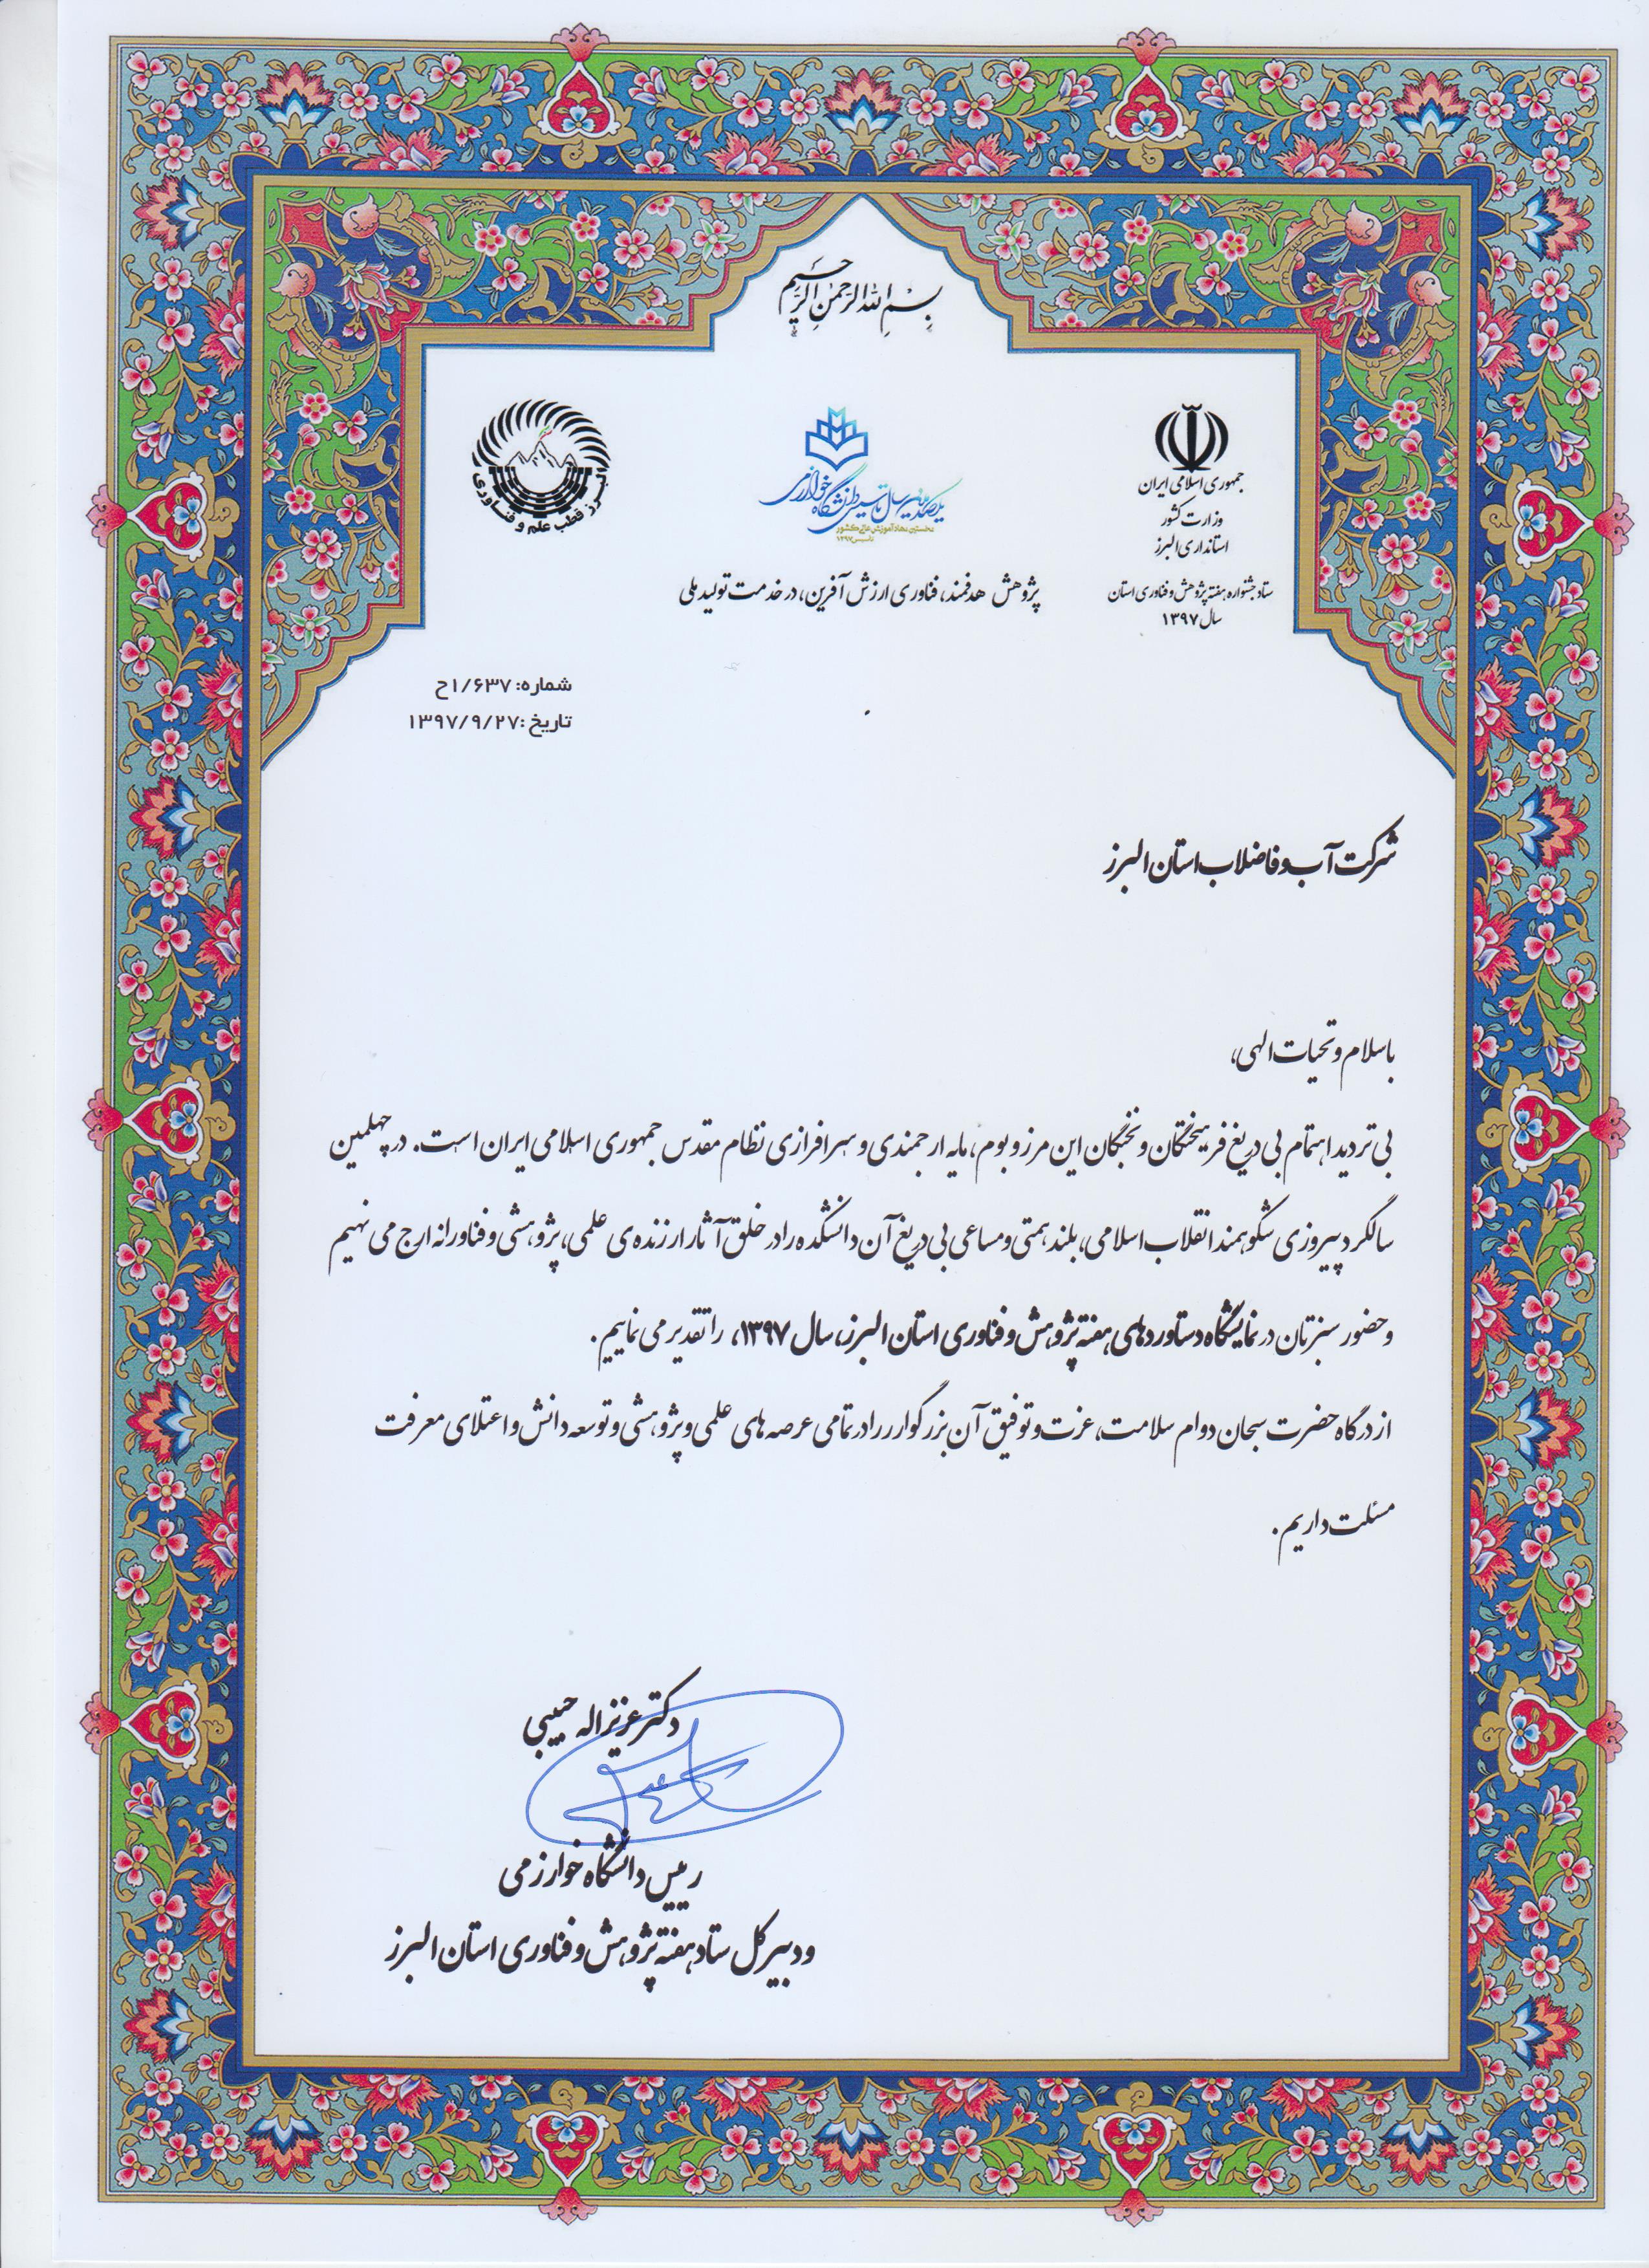 بسم الله الرحمن الرحیم
جمهوری اسلامی ایران
وزارت کشور
استانداری البرز
ستاد جشنواره هفته پژوهش و فناوری استان
سال ۱۳۹۷
یکصدمین سال تاسیس دانشگاه خوارزمی
نخستین نهاد آموزش عالی کشور
تاسیس ۱۲۹۷
پژوهش هدفمند، فناوری ارزش آفرین، در خدمت تولید ملی
البرز قطب علم و فناوری
شماره: ۱/۶۳۷ح
تاریخ: ۱۳۹۷/۹/۲۷
شرکت آب و فاضلاب استان البرز
با سلام و تحیات الهی،
بی تردید اهتمام بی دریغ فرهیختگان و نخبگان این مرز و بوم، مایه ارجمندی و سرافرازی نظام مقدس جمهوری اسلامی ایران است. در چهلمین
سالگرد پیروزی شکوهمند انقلاب اسلامی، بلند همتی و مساعی بی دریغ آن دانشکده را در خلق آثار ارزنده ی علمی، پژوهشی و فناورانه ارج می نهیم
و حضور سبزتان در نمایشگاه دستاوردهای هفته پژوهش و فناوری استان البرز، سال ۱۳۹۷، را تقدیر می نماییم.
از درگاه حضرت سبحان دوام سلامت، عزت و توفیق آن بزرگوار را در تمامی عرصه های علمی و پژوهشی و توسعه دانش و اعتلای معرفت
مسئلت داریم.
دکتر عزیزاله حبیبی
رییس دانشگاه خوارزمی
و دبیر کل ستاد هفته پژوهش و فناوری استان البرز